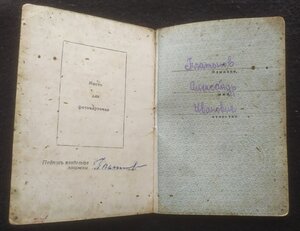 Место
для
фотокарточки
Подпись владельца
книжки
фамилия
Александр
имя
Иванович
отчество